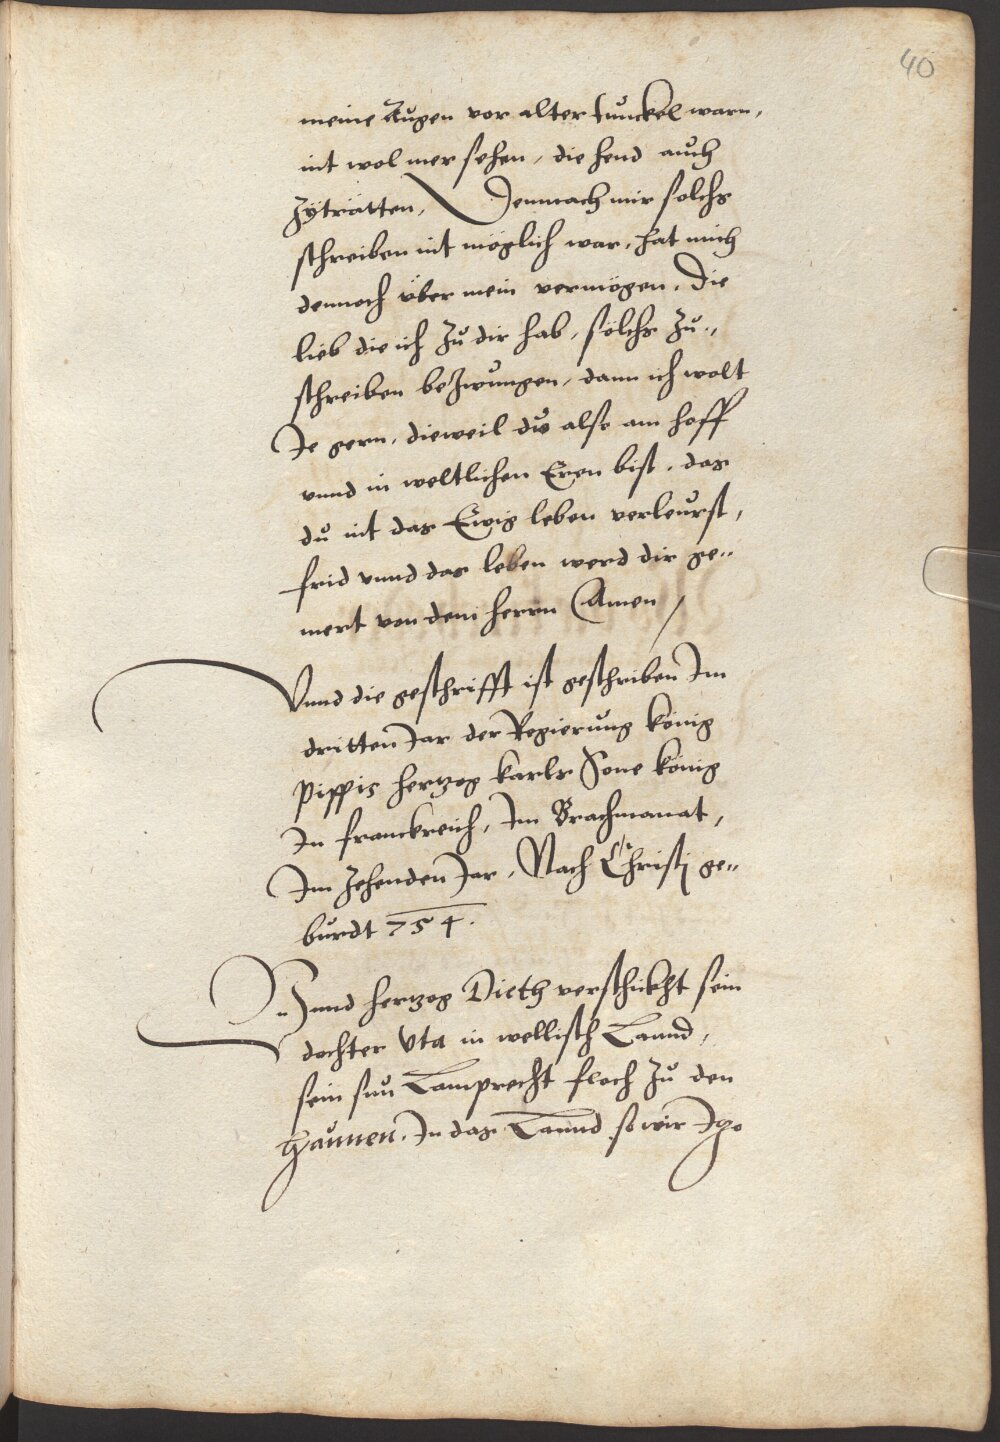 40
meine Augen vor alter tunckel warn,
nit wol mer sehen, die hend auch
zytratten, Demnach mir solchs
schreiben nit möglich war, hat mich
dennoch über mein vermögen, Die
lieb die ich zu dir hab, sölchs zu„
schreiben bezwungen, dann ich wolt
Je gern, dieweil du also am hoff
vnnd in weltlichen Eren bist, das
du nit das Ewig leben verleurst,
frid vnnd das leben werd dir ge„
mert von dem herrn Amen /
Vnnd die geschrifft ist geschriben Im
dritten Jar der Regierung König
Pippis hertzog karls Sone König
In franckreich, Im Brachmonat,
Im zehenden Jar, Nach Christj ge„
burdt 754.
Vnnd hertzog Dieth verschickht sein
dochter Vta in wellisch Lannd,
sein sun Lamprecht floch zu den
Haunen. In das Lannd so wir Itzo